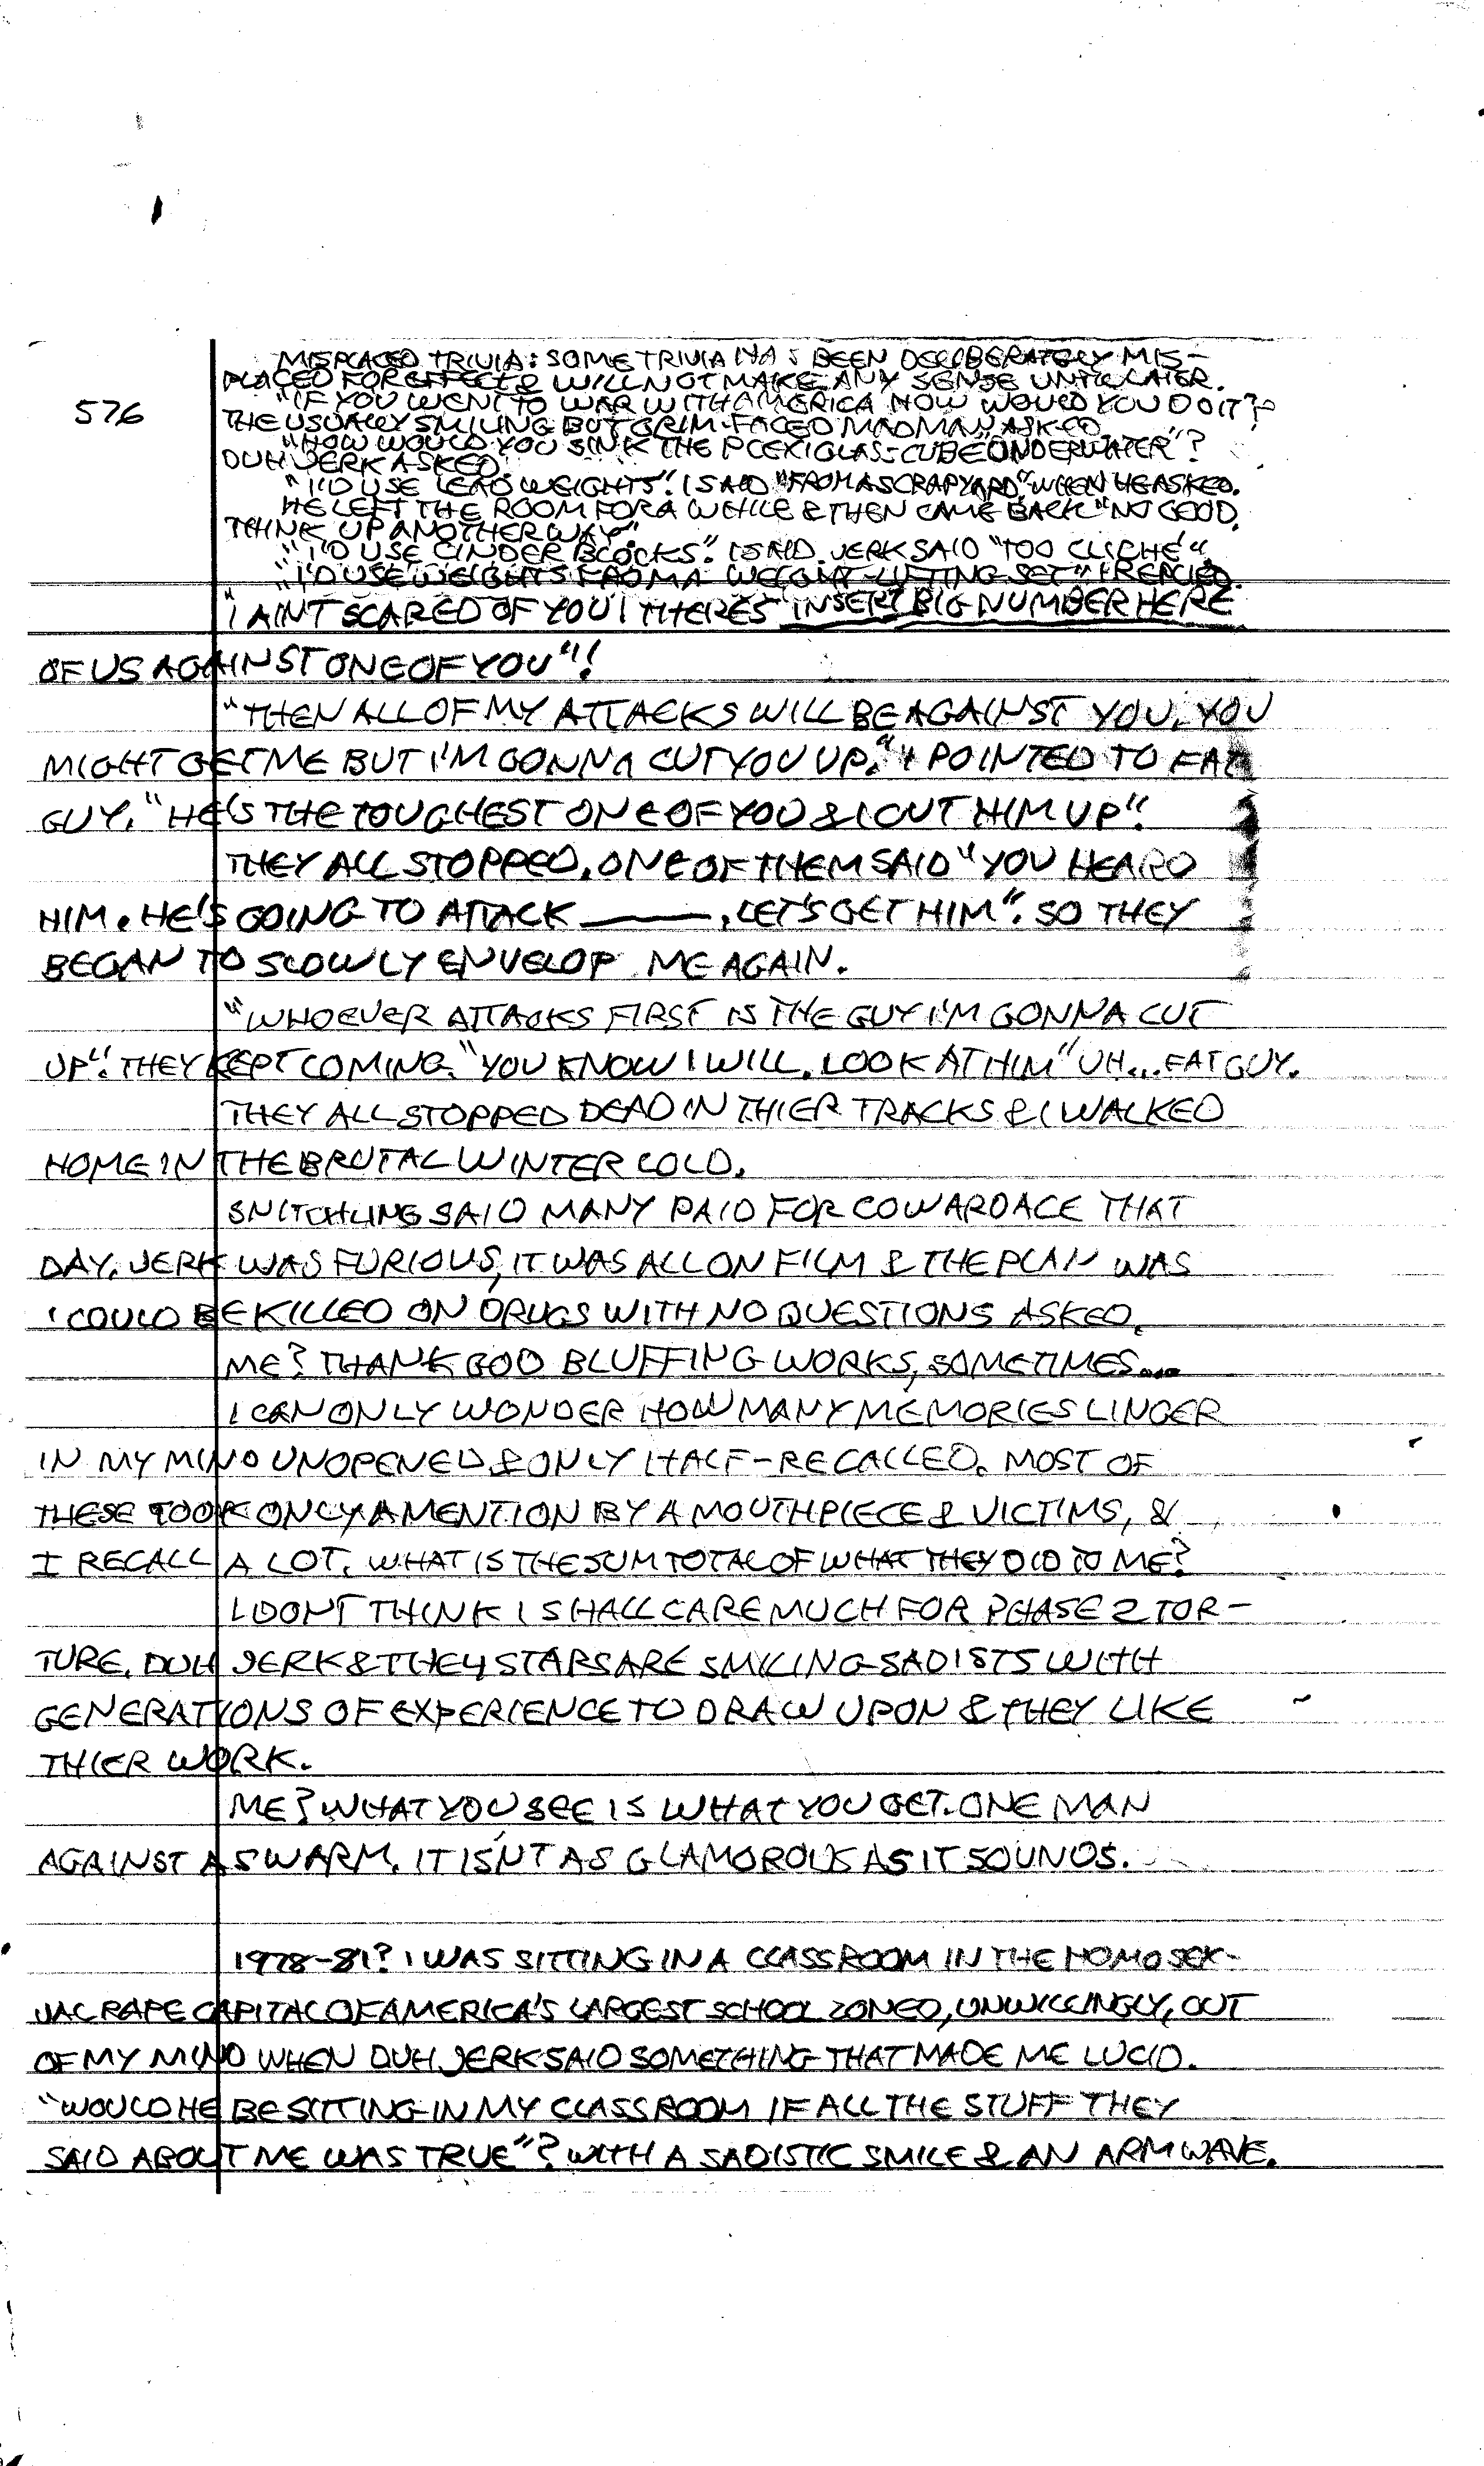 576
MISPLACED TRIVIA: SOME TRIVIA HAS BEEN DELIBERATELY MIS-
PLACED FOR EFFECT & WILL NOT MAKE ANY SENSE UNTIL LATER.
"IF YOU WENT TO WAR WITH AMERICA HOW WOULD YOU DO IT?"
THE USUALLY SMILING BUT GRIM-FACED MADMAN ASKED.
"HOW WOULD YOU SINK THE PLEXIGLAS-CUBE UNDERWATER"?
DUH JERK ASKED.
"I'D USE LEAD WEIGHTS". I SAID "FROM A SCRAPYARD." WHEN HE ASKED.
HE LEFT THE ROOM FOR A WHILE & THEN CAME BACK "NO GOOD.
THINK UP ANOTHER WAY".
"I'D USE CINDER BLOCKS". I SAID. JERK SAID "TOO CLICHÉ".
"I'D USE WEIGHTS FROM A WEIGHT-LIFTING SET" I REPLIED.
"I AINT SCARED OF YOU! THERE'S INSERT BIG NUMBER HERE
OF US AGAINST ONE OF YOU"!
"THEN ALL OF MY ATTACKS WILL BE AGAINST YOU. YOU
MIGHT GET ME BUT I'M GONNA CUT YOU UP." I POINTED TO FAT
GUY. "HE'S THE TOUGHEST ONE OF YOU & I CUT HIM UP".
THEY ALL STOPPED. ONE OF THEM SAID "YOU HEARD
HIM. HE'S GOING TO ATTACK ———, LET'S GET HIM". SO THEY
BEGAN TO SLOWLY ENVELOP ME AGAIN.
"WHOEVER ATTACKS FIRST IS THE GUY I'M GONNA CUT
UP". THEY KEPT COMING. "YOU KNOW I WILL. LOOK AT HIM" UH... FAT GUY.
THEY ALL STOPPED DEAD IN THIER TRACKS & I WALKED
HOME IN THE BRUTAL WINTER COLD.
SNITCHLING SAID MANY PAID FOR COWARDACE THAT
DAY. JERK WAS FURIOUS, IT WAS ALL ON FILM & THE PLAN WAS
I COULD BE KILLED ON DRUGS WITH NO QUESTIONS ASKED.
ME? THANK GOD BLUFFING WORKS, SOMETIMES...
I CAN ONLY WONDER HOW MANY MEMORIES LINGER
IN MY MIND UNOPENED & ONLY HALF-RECALLED. MOST OF
THESE TOOK ONLY A MENTION BY A MOUTHPIECE & VICTIMS, &
I RECALL A LOT. WHAT IS THE SUM TOTAL OF WHAT THEY DID TO ME?
I DON'T THINK I SHALL CARE MUCH FOR PHASE 2 TOR-
TURE. DUH JERK & THEY STARS ARE SMILING SADISTS WITH
GENERATIONS OF EXPERIENCE TO DRAW UPON & THEY LIKE
THIER WORK.
ME? WHAT YOU SEE IS WHAT YOU GET. ONE MAN
AGAINST A SWARM. IT ISN'T AS GLAMOROUS AS IT SOUNDS.
1978-81? I WAS SITTING IN A CLASSROOM IN THE HOMOSEX-
UAL RAPE CAPITAL OF AMERICA'S LARGEST SCHOOL ZONED, UNWILLINGLY, OUT
OF MY MIND WHEN DUH JERK SAID SOMETHING THAT MADE ME LUCID.
"WOULD HE BE SITTING IN MY CLASSROOM IF ALL THE STUFF THEY
SAID ABOUT ME WAS TRUE"? WITH A SADISTIC SMILE & AN ARM WAVE.